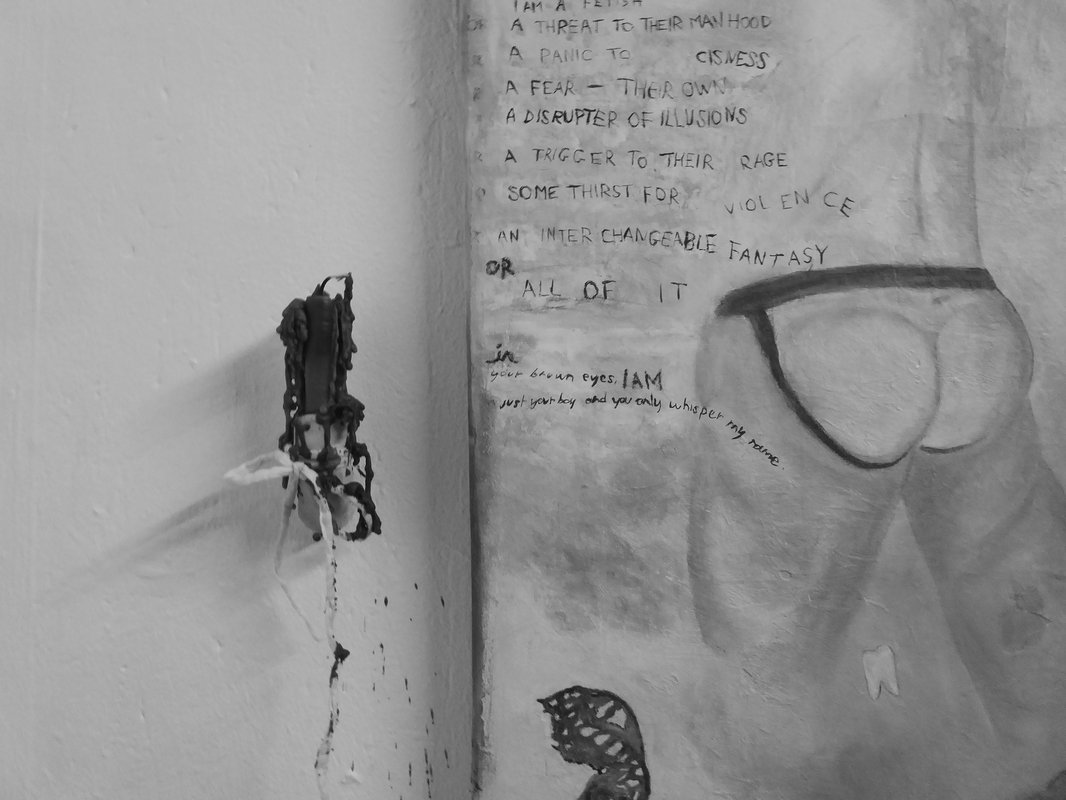 I AM A FETISH
A THREAT TO THEIR MANHOOD
A PANIC TO CISNESS
A FEAR — THEIR OWN
A DISRUPTER OF ILLUSIONS
A TRIGGER TO THEIR RAGE
SOME THIRST FOR VIOLENCE
AN INTERCHANGEABLE FANTASY
OR
ALL OF IT
in
your brown eyes, I AM
just your boy and you only whisper my name.